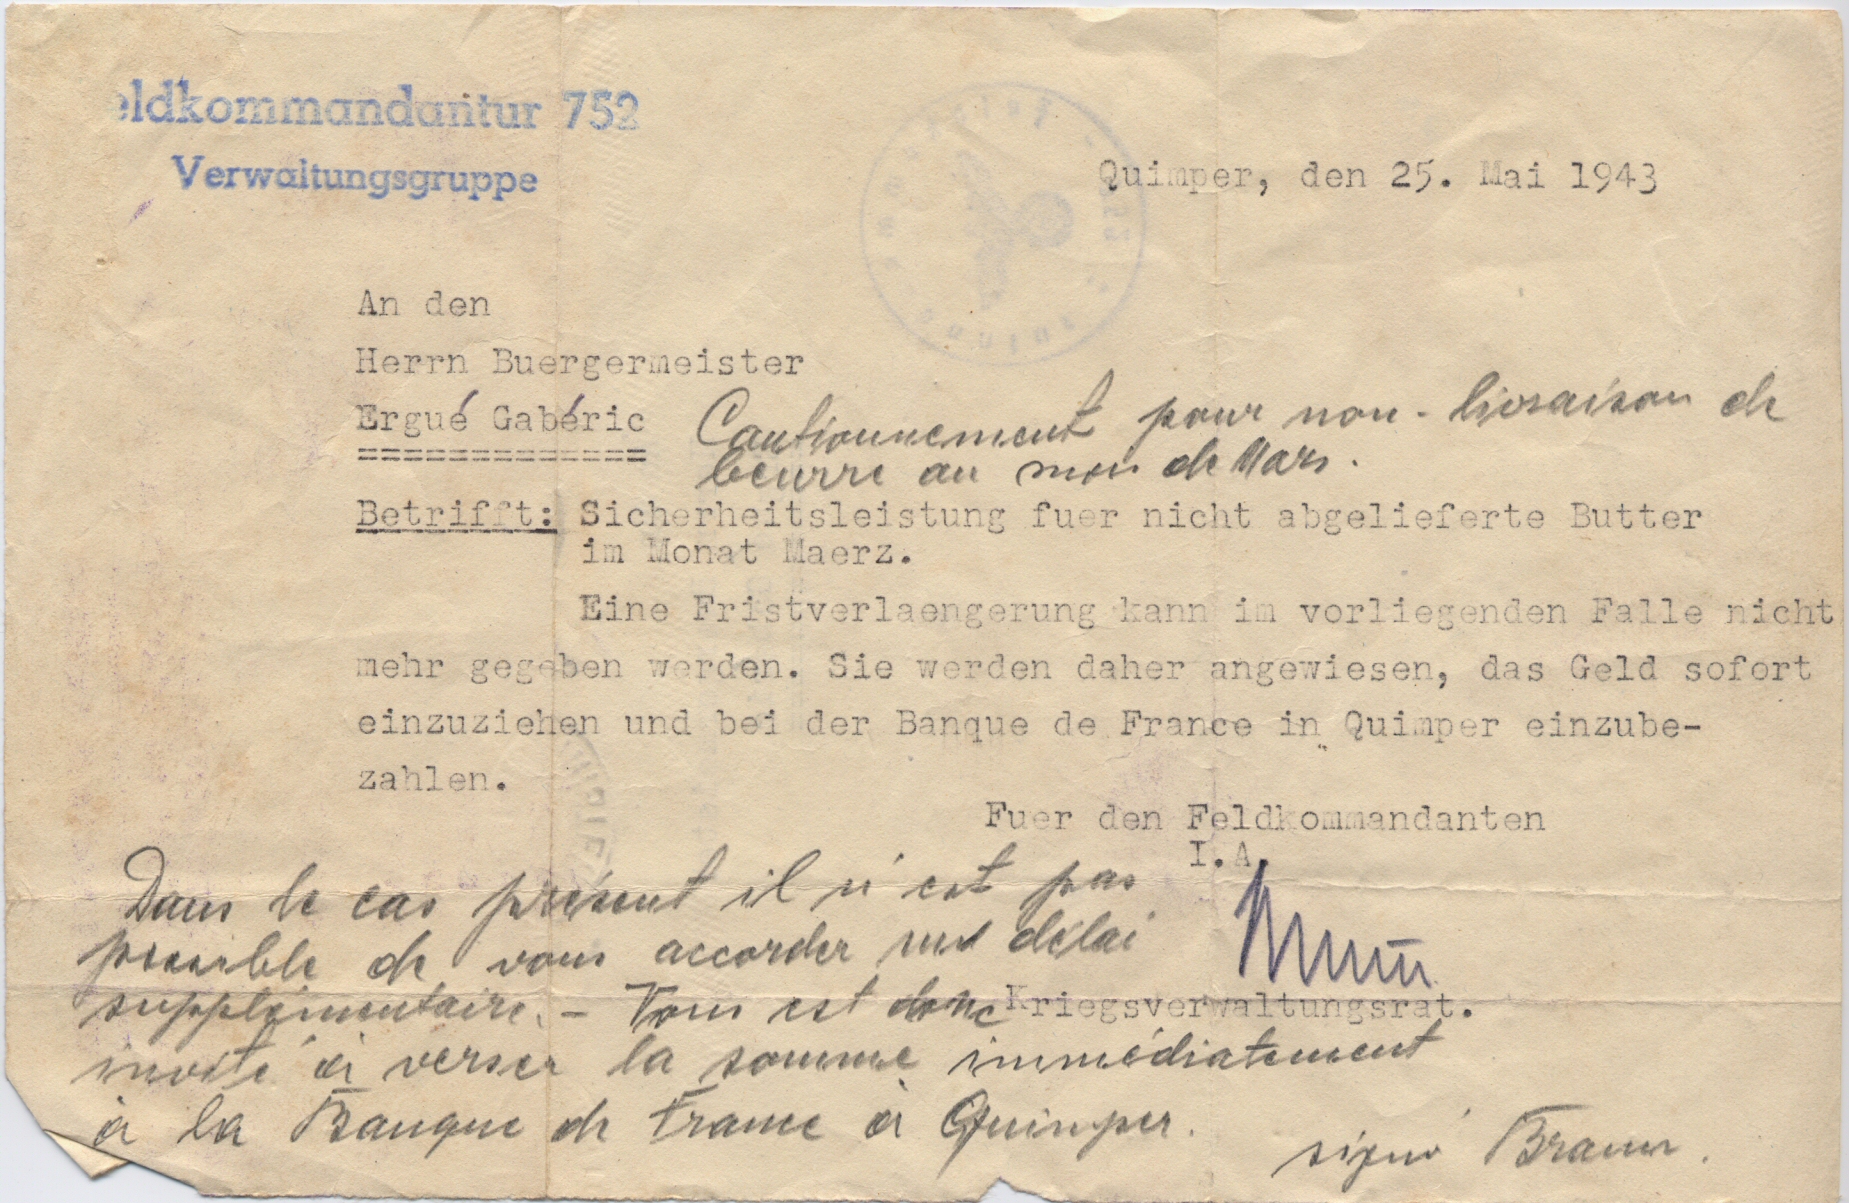 eldkommandantur 752
Verwaltungsgruppe
Quimper, den 25. Mai 1943
An den
Herrn Buergermeister
Ergué Gabéric
=============
Cautionnement pour non-livraison de
beurre au mois de Mars.
Betrifft: Sicherheitsleistung fuer nicht abgelieferte Butter
im Monat Maerz.
Eine Fristverlaengerung kann im vorliegenden Falle nicht
mehr gegeben werden. Sie werden daher angewiesen, das Geld sofort
einzuziehen und bei der Banque de France in Quimper einzube-
zahlen.
Fuer den Feldkommandanten
I.A.
Kriegsverwaltungsrat.
Dans le cas présent il n'est pas
possible de vous accorder un délai
supplémentaire. - Vous est donc
invité à verser la somme immédiatement
à la Banque de France à Quimper.
signé Braun.